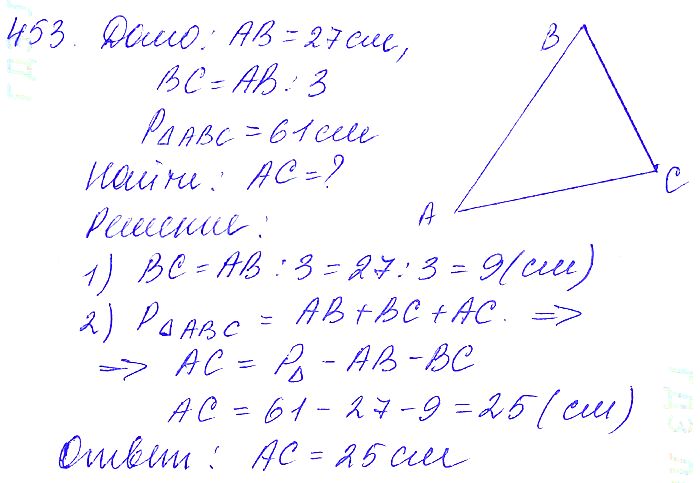 453. Дано: AB = 27 см,
BC = AB : 3
P△ABC = 61 см
Найти: AC = ?
Решение:
1) BC = AB : 3 = 27 : 3 = 9 (см)
2) P△ABC = AB + BC + AC. ⇒
⇒ AC = P△ - AB - BC
AC = 61 - 27 - 9 = 25 (см)
Ответ: AC = 25 см
B
A
C